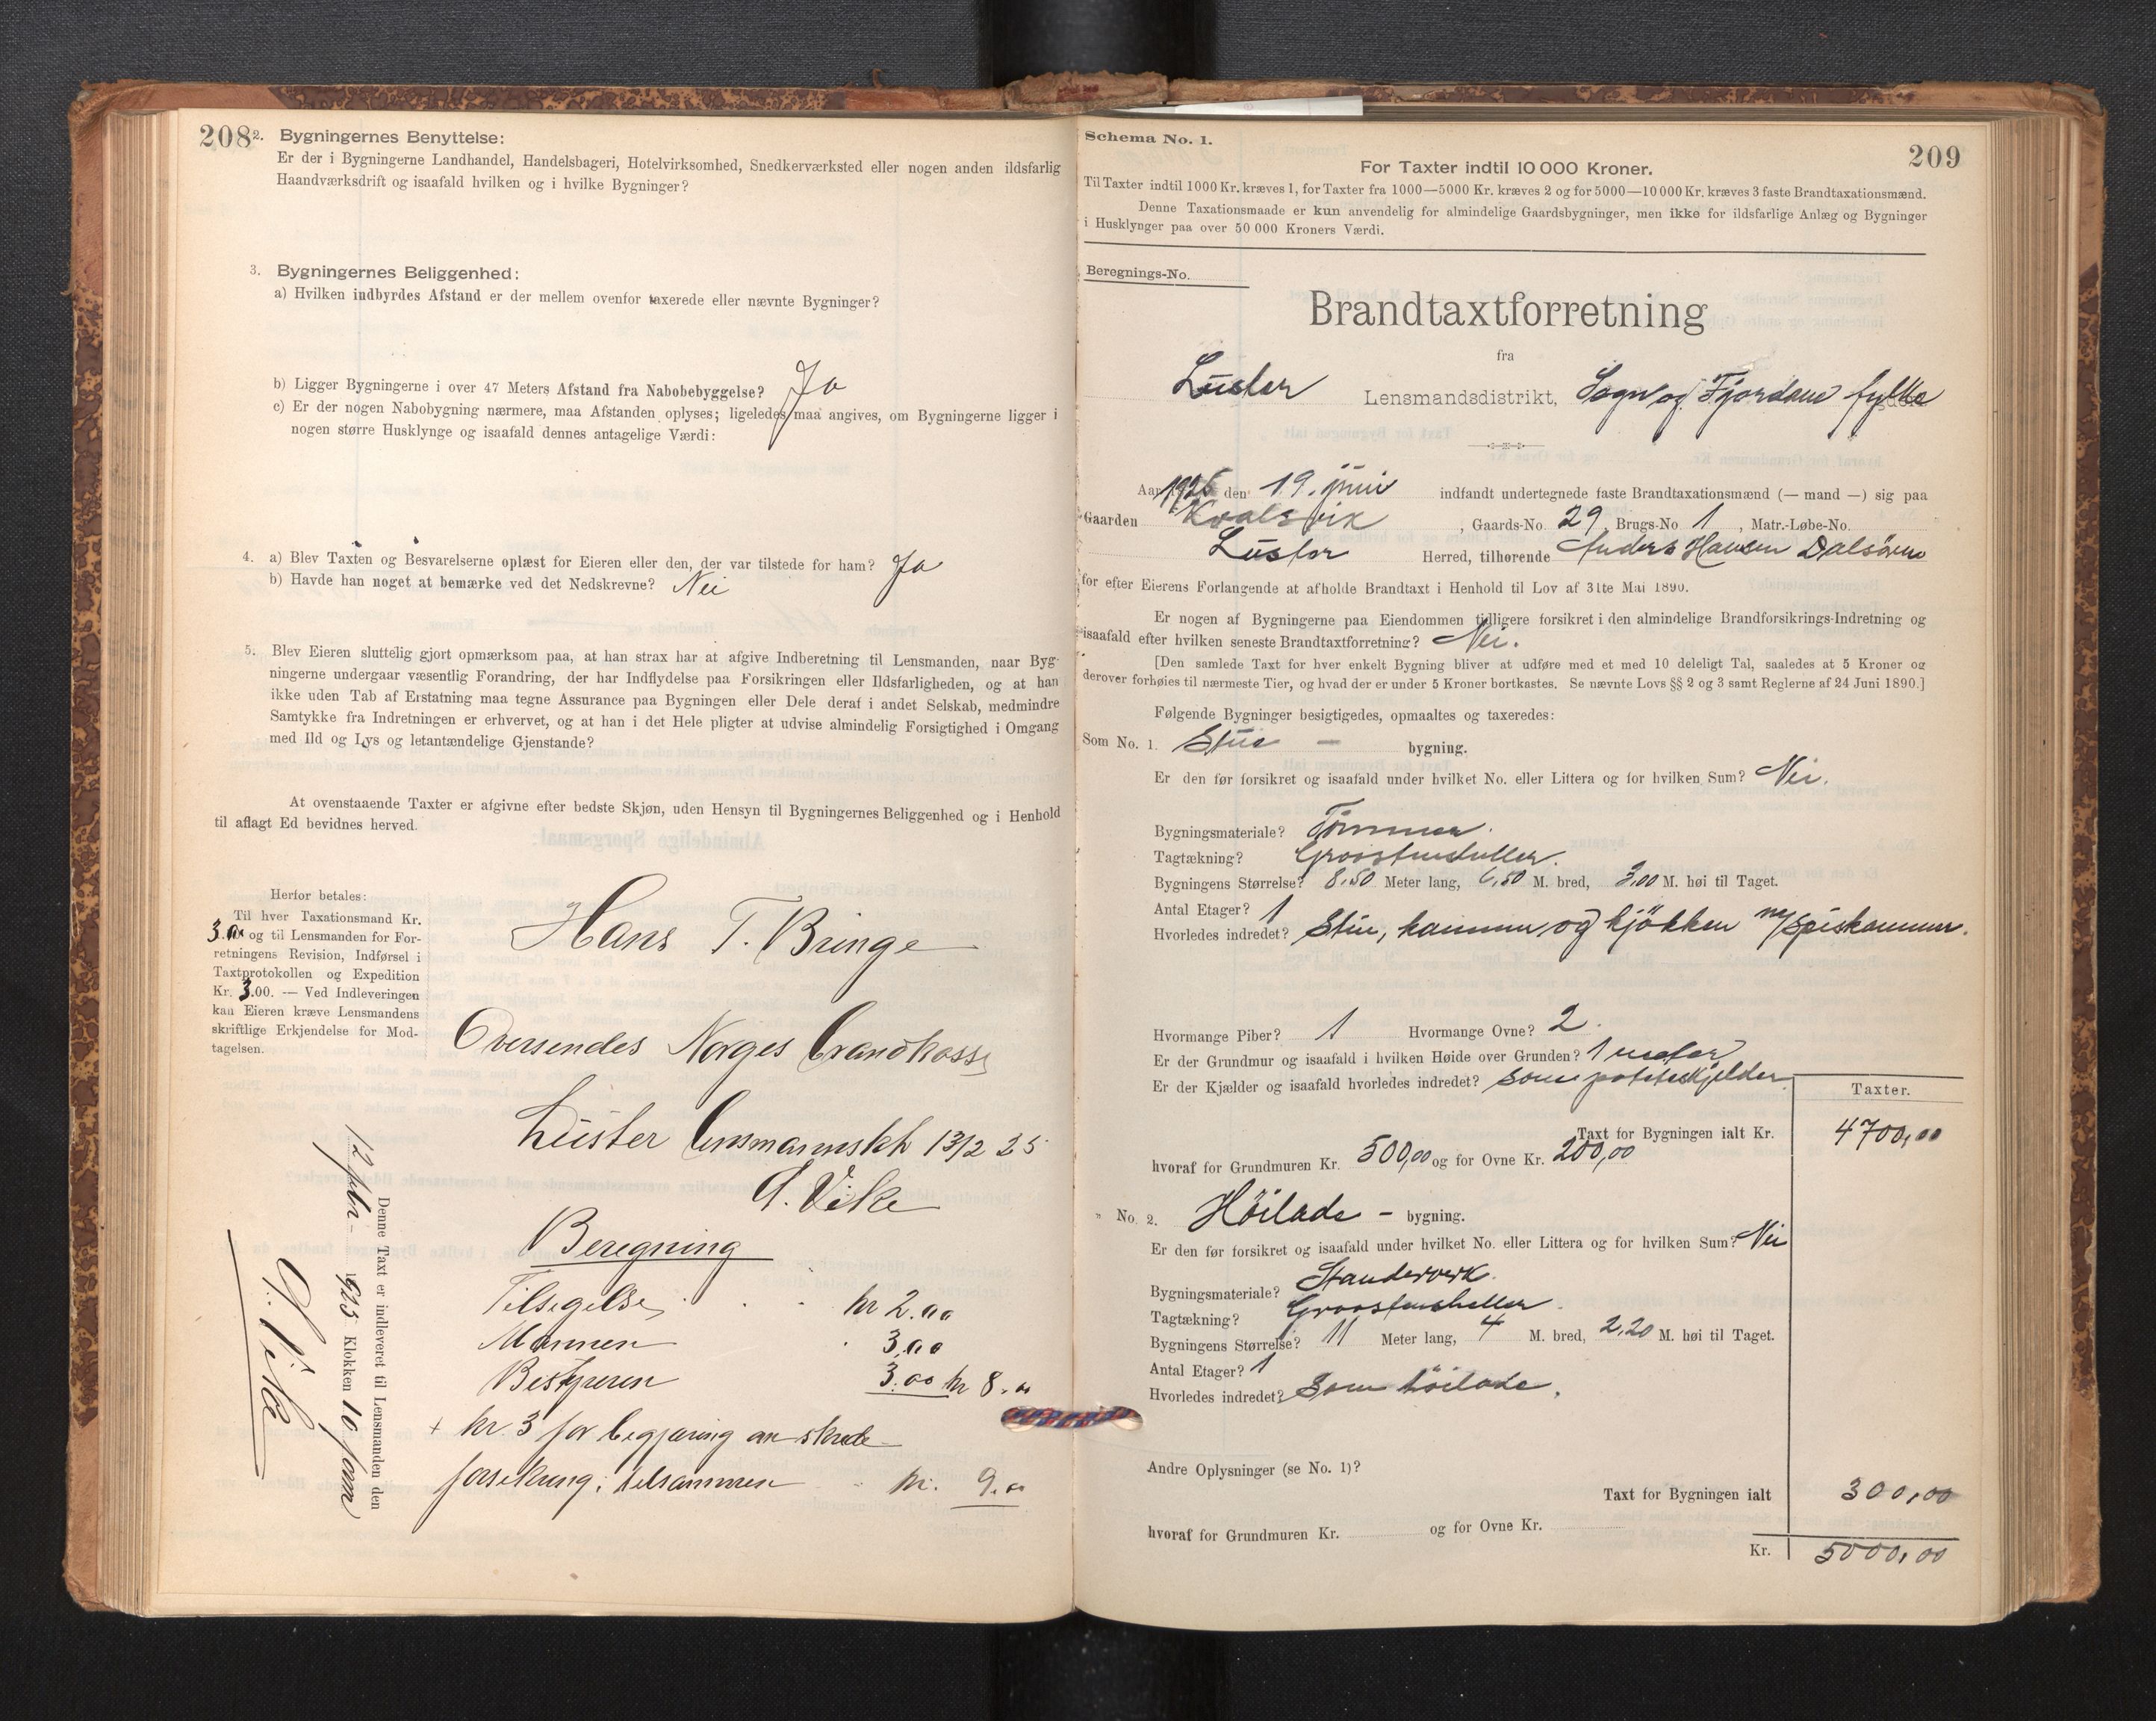 208
2. Bygningernes Benyttelse:
Er der i Bygningerne Landhandel, Handelsbageri, Hotelvirksomhed, Snedkerværksted eller nogen anden ildsfarlig
Haandværksdrift og isaafald hvilken og i hvilke Bygninger?
3. Bygningernes Beliggenhed:
a) Hvilken indbyrdes Afstand er der mellem ovenfor taxerede eller nævnte Bygninger?
b) Ligger Bygningerne i over 47 Meters Afstand fra Nabobebyggelse? Ja
c) Er der nogen Nabobygning nærmere, maa Afstanden oplyses; ligeledes maa angives, om Bygningerne ligger i
nogen større Husklynge og isaafald dennes antagelige Værdi:
4. a) Blev Taxten og Besvarelserne oplæst for Eieren eller den, der var tilstede for ham? Ja
b) Havde han noget at bemærke ved det Nedskrevne? Nei
5. Blev Eieren sluttelig gjort opmærksom paa, at han strax har at afgive Indberetning til Lensmanden, naar Byg-
ningerne undergaar væsentlig Forandring, der har Indflydelse paa Forsikringen eller Ildsfarligheden, og at han
ikke uden Tab af Erstatning maa tegne Assurance paa Bygningen eller Dele deraf i andet Selskab, medmindre
Samtykke fra Indretningen er erhvervet, og at han i det Hele pligter at udvise almindelig Forsigtighed i Omgang
med Ild og Lys og letantændelige Gjenstande?
At ovenstaaende Taxter er afgivne efter bedste Skjøn, uden Hensyn til Bygningernes Beliggenhed og i Henhold
til aflagt Ed bevidnes herved.
Herfor betales:
Til hver Taxationsmand Kr.
3.00 og til Lensmanden for For-
retningens Revision, Indførsel i
Taxtprotokollen og Expedition
Kr. 3.00. — Ved Indleveringen
kan Eieren kræve Lensmandens
skriftlige Erkjendelse for Mod-
tagelsen.
Hans T. Bringe
Oversendes Norges Brandkasse
Luster 13/2 25
Vike
Beregning
Tilsigelse kr 2.00
Mannen 3.00
Bestyreren 3.00 kr 8.00
+ kr 3 for begjæring om skade
forsikring; tilsammen kr. 9.00
Denne Taxt er indleveret til Lensmanden den
12 febr. 1925 Klokken 10 form
Vike
Schema No. 1.
209
For Taxter indtil 10 000 Kroner.
Til Taxter indtil 1000 Kr. kræves 1, for Taxter fra 1000—5000 Kr. kræves 2 og for 5000—10 000 Kr. kræves 3 faste Brandtaxationsmænd.
Denne Taxationsmaade er kun anvendelig for almindelige Gaardsbygninger, men ikke for ildsfarlige Anlæg og Bygninger
i Husklynger paa over 50 000 Kroners Værdi.
Beregnings-No.
Brandtaxtforretning
fra
Luster Lensmandsdistrikt, Sogn og Fjordane fylke
Aar 1925 den 19. juni indfandt undertegnede faste Brandtaxationsmænd (— mand —) sig paa
Gaarden Kvalsvik, Gaards-No. 29, Brugs-No. 1, Matr.-Løbe-No.
Luster Herred, tilhørende Anders Hansen Dalsøren
for efter Eierens Forlangende at afholde Brandtaxt i Henhold til Lov af 31te Mai 1890.
Er nogen af Bygningerne paa Eiendommen tidligere forsikret i den almindelige Brandforsikrings-Indretning og
isaafald efter hvilken seneste Brandtaxtforretning? Nei.
[Den samlede Taxt for hver enkelt Bygning bliver at udføre med et med 10 deleligt Tal, saaledes at 5 Kroner og
derover forhøies til nærmeste Tier, og hvad der er under 5 Kroner bortkastes. Se nævnte Lovs §§ 2 og 3 samt Reglerne af 24 Juni 1890.]
Følgende Bygninger besigtigedes, opmaaltes og taxeredes:
Som No. 1. Stue – bygning.
Er den før forsikret og isaafald under hvilket No. eller Littera og for hvilken Sum? Nei.
Bygningsmateriale? Tømmer.
Tagtækning? Graastenheller.
Bygningens Størrelse? 8,50 Meter lang, 6,50 M. bred, 3,00 M. høi til Taget.
Antal Etager? 1
Hvorledes indredet? Stue, kammer og kjøkken m/ spiskammer.
Hvormange Piber? 1 Hvormange Ovne? 2.
Er der Grundmur og isaafald i hvilken Høide over Grunden? 1 meter
Er der Kjælder og isaafald hvorledes indredet? Som potetkjelder
Taxter.
Taxt for Bygningen ialt Kr. 4700,00
hvoraf for Grundmuren Kr. 500,00 og for Ovne Kr. 200,00
" No. 2. Høilade – bygning.
Er den før forsikret og isaafald under hvilket No. eller Littera og for hvilken Sum? Nei
Bygningsmateriale? Standerverk.
Tagtækning? Graastensheller.
Bygningens Størrelse? 11 Meter lang, 4 M. bred, 2,20 M. høi til Taget.
Antal Etager? 1
Hvorledes indredet? Som høilade.
Andre Oplysninger (se No. 1)?
Taxt for Bygningen ialt 300,00
hvoraf for Grundmuren Kr. og for Ovne Kr.
Kr. 5000,00